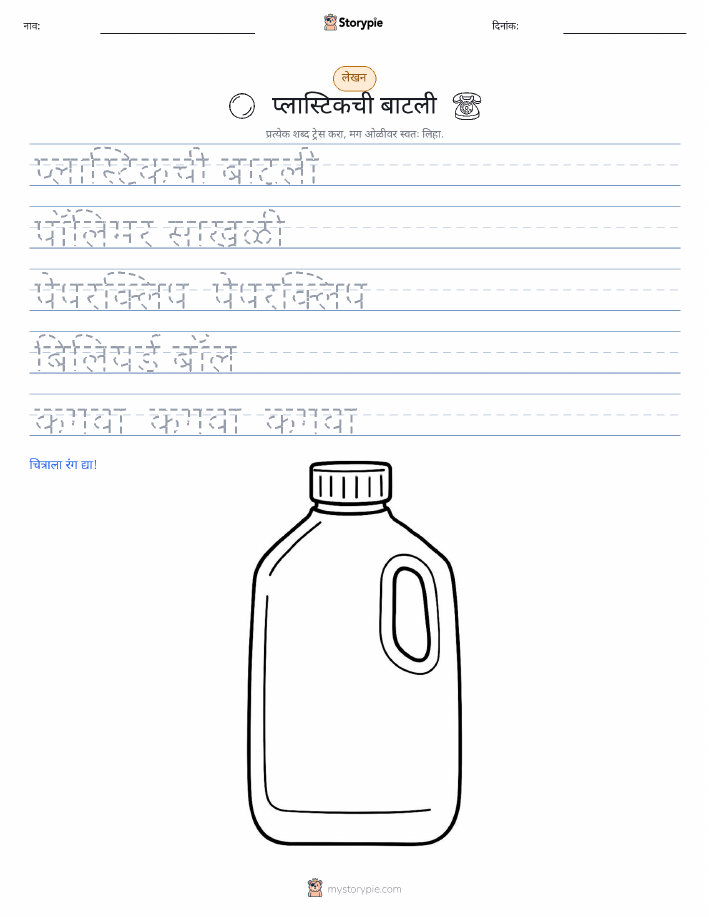 नाव:
Storypie
दिनांक:
लेखन
प्लास्टिकची बाटली
प्रत्येक शब्द ट्रेस करा, मग ओळीवर स्वतः लिहा.
प्लास्टिकची बाटली
पॉलिमर साखळी
पेपरक्लिप पेपरक्लिप
बिलियर्ड बॉल
कगवा कगवा कगवा
चित्राला रंग द्या!
mystorypie.com